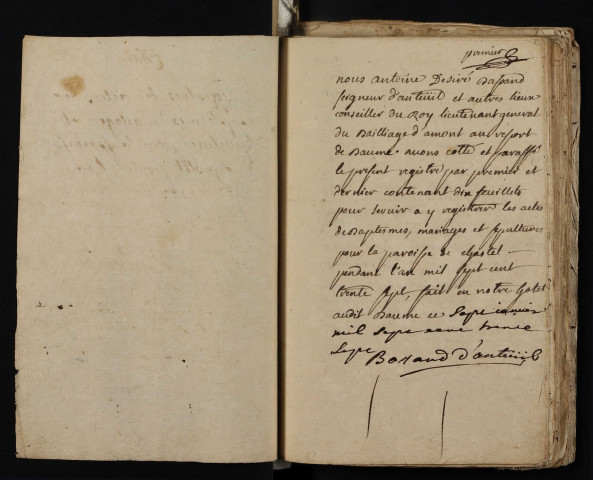 premier
nous antoine Desiré Bassand
seigneur d'anteüil et autres lieux
conseiller du Roy lieutenant general
du Bailliage d'amont au resort
de Baume auons cotté et paraffé
le present registre par premier et
dernier contenant dix feuillets
pour seruir a y registrer les actes
de Baptesmes, mariages et sepultures
pour la paroisse de
pendant l'an mil sept cent
trente sept, fait en notre hotel
audit Baume ce sept ianuier
mil sept cent trente
sept
Basand d'anteüil